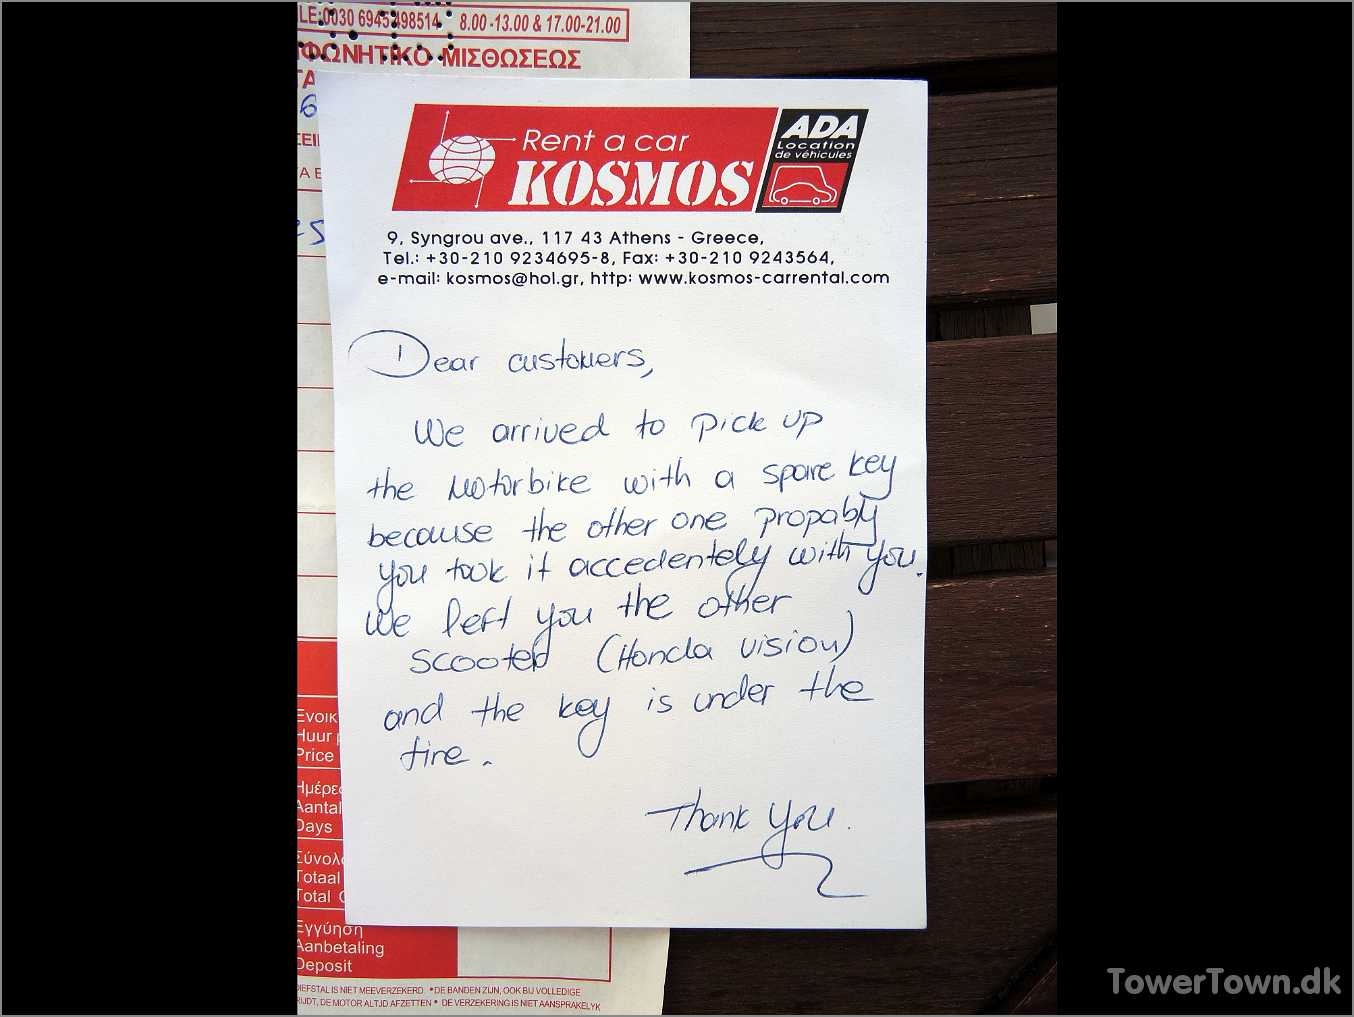 LE:0030 6945498514 8.00 -13.00 & 17.00-21.00
ΦΩΝΗΤΙΚΟ ΜΙΣΘΩΣΕΩΣ
ΤΑ
6
ΣΕΙ
Α Ε
Rent a car
KOSMOS
ADA
Location
de véhicules
9, Syngrou ave., 117 43 Athens - Greece,
Tel.: +30-210 9234695-8, Fax: +30-210 9243564,
e-mail: kosmos@hol.gr, http: www.kosmos-carrental.com
Dear customers,
We arrived to pick up
the motorbike with a spare key
because the other one propably
you took it accedentely with you.
We left you the other
scooter (Honda vision)
and the key is under the
tire.
Thank you.
Ενοικ
Huur p
Price
Ημέρες
Aantal
Days
Σύνολο
Totaal
Total
Εγγύηση
Aanbetaling
Deposit
DIEFSTAL IS NIET MEEVERZEKERD * DE BANDEN ZIJN, OOK BIJ VOLLEDIGE
RIJDT, DE MOTOR ALTJD AFZETTEN * DE VERZEKERING IS NIET AANSPRAKELYK
TowerTown.dk